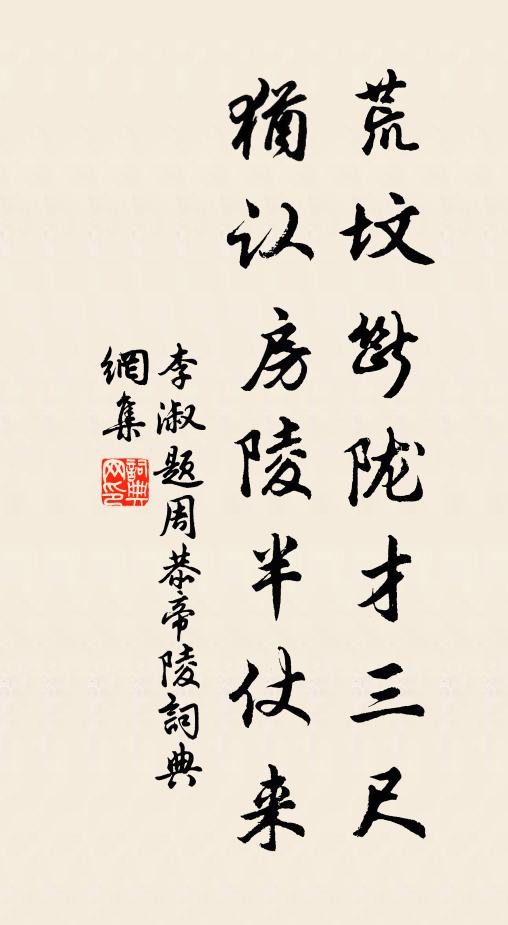 荒坟斷陇才三尺
猶认房陵半仗来
李淑题周恭帝陵詞典
網集
詞典网印